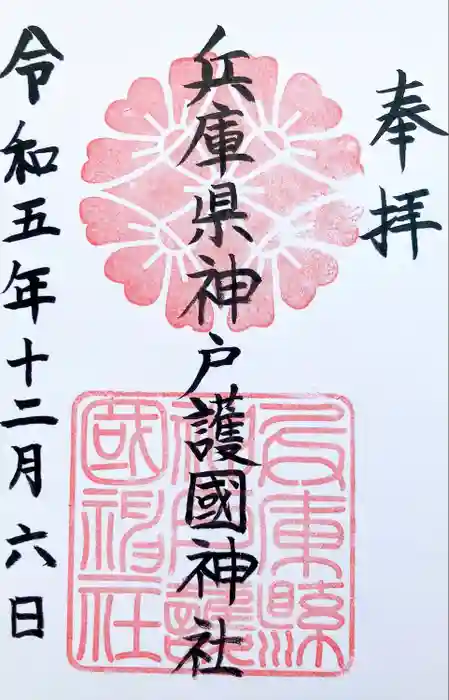 奉拝
兵庫県神戸護國神社
兵庫縣
神戸護
國神社
令和五年十二月六日